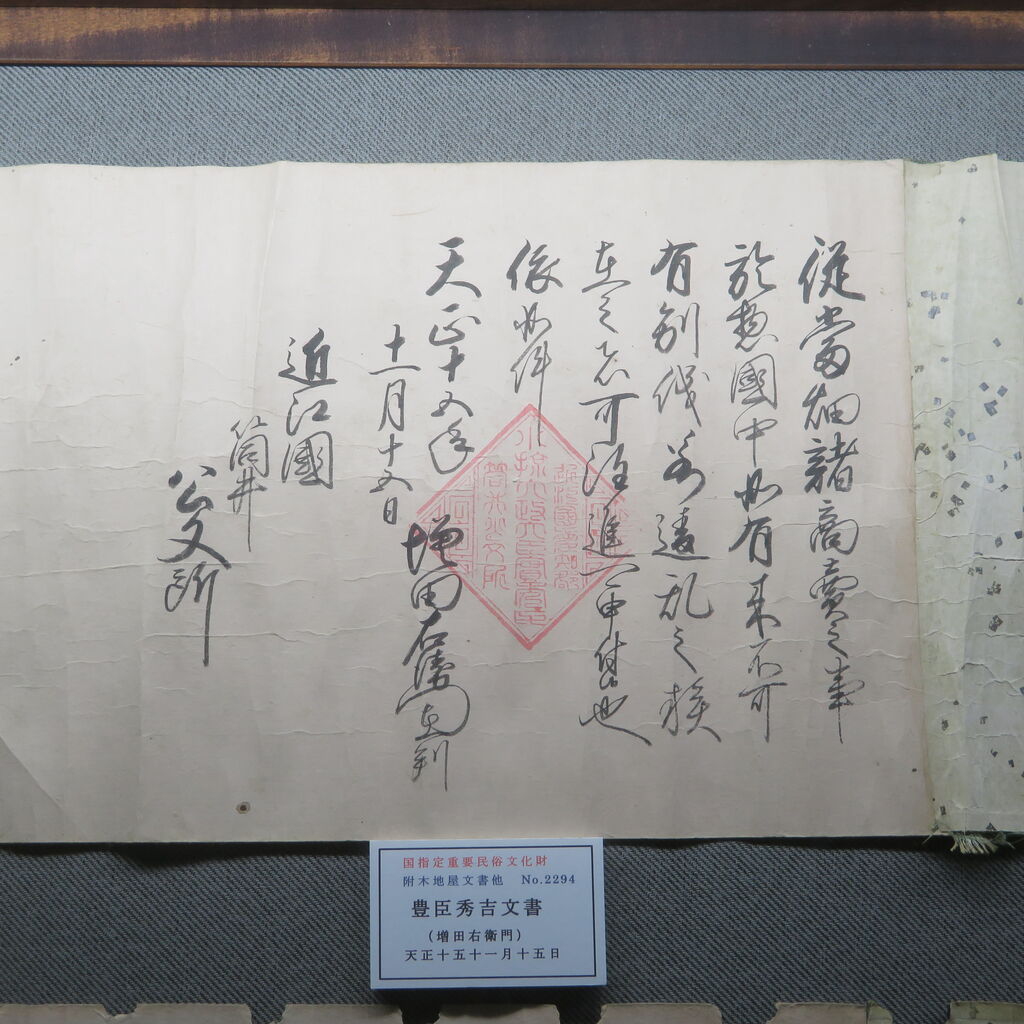 從當畑諸商賣之事
於惣國中如有来不可
有別儀若違乱之族
在之者可注進可申付也
依如件
天正十五年
十一月十五日
増田右衛門尉判
近江國
筒井
公文所
国指定重要民俗文化財
附木地屋文書他 No.2294
豊臣秀吉文書
(増田右衛門)
天正十五十一月十五日